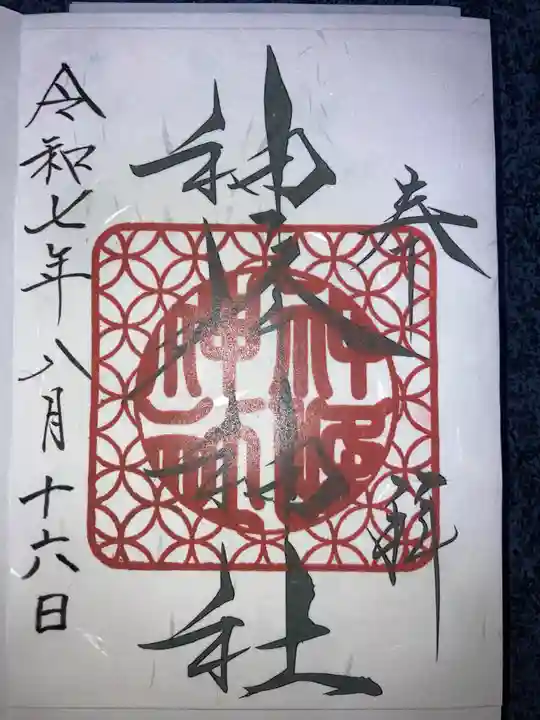 奉拝
神坂神社
令和七年八月十六日